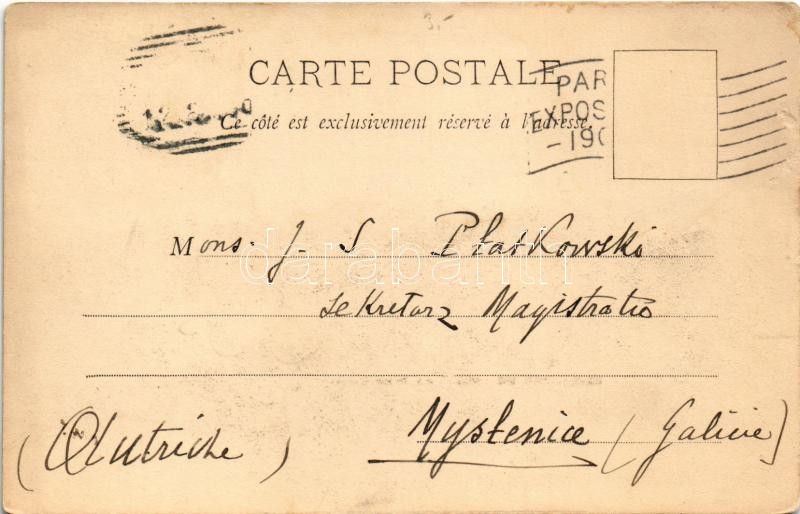 3.-
CARTE POSTALE
Ce côté est exclusivement réservé à l'adresse.
PAR
EXPOS
-190
Mons. J. S Płatkowski
sekretarz Magistratu
Myślenice (Galicie)
(Autriche)
darabanth